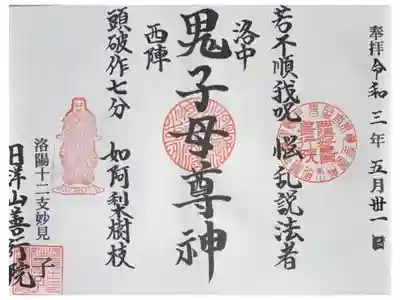 奉拝 令和三年五月卅一日
若不順我呪 悩乱説法者
洛中
鬼子母尊神
西陣
頭破作七分 如阿梨樹枝
洛陽十二支妙見
子
日洋山善行院